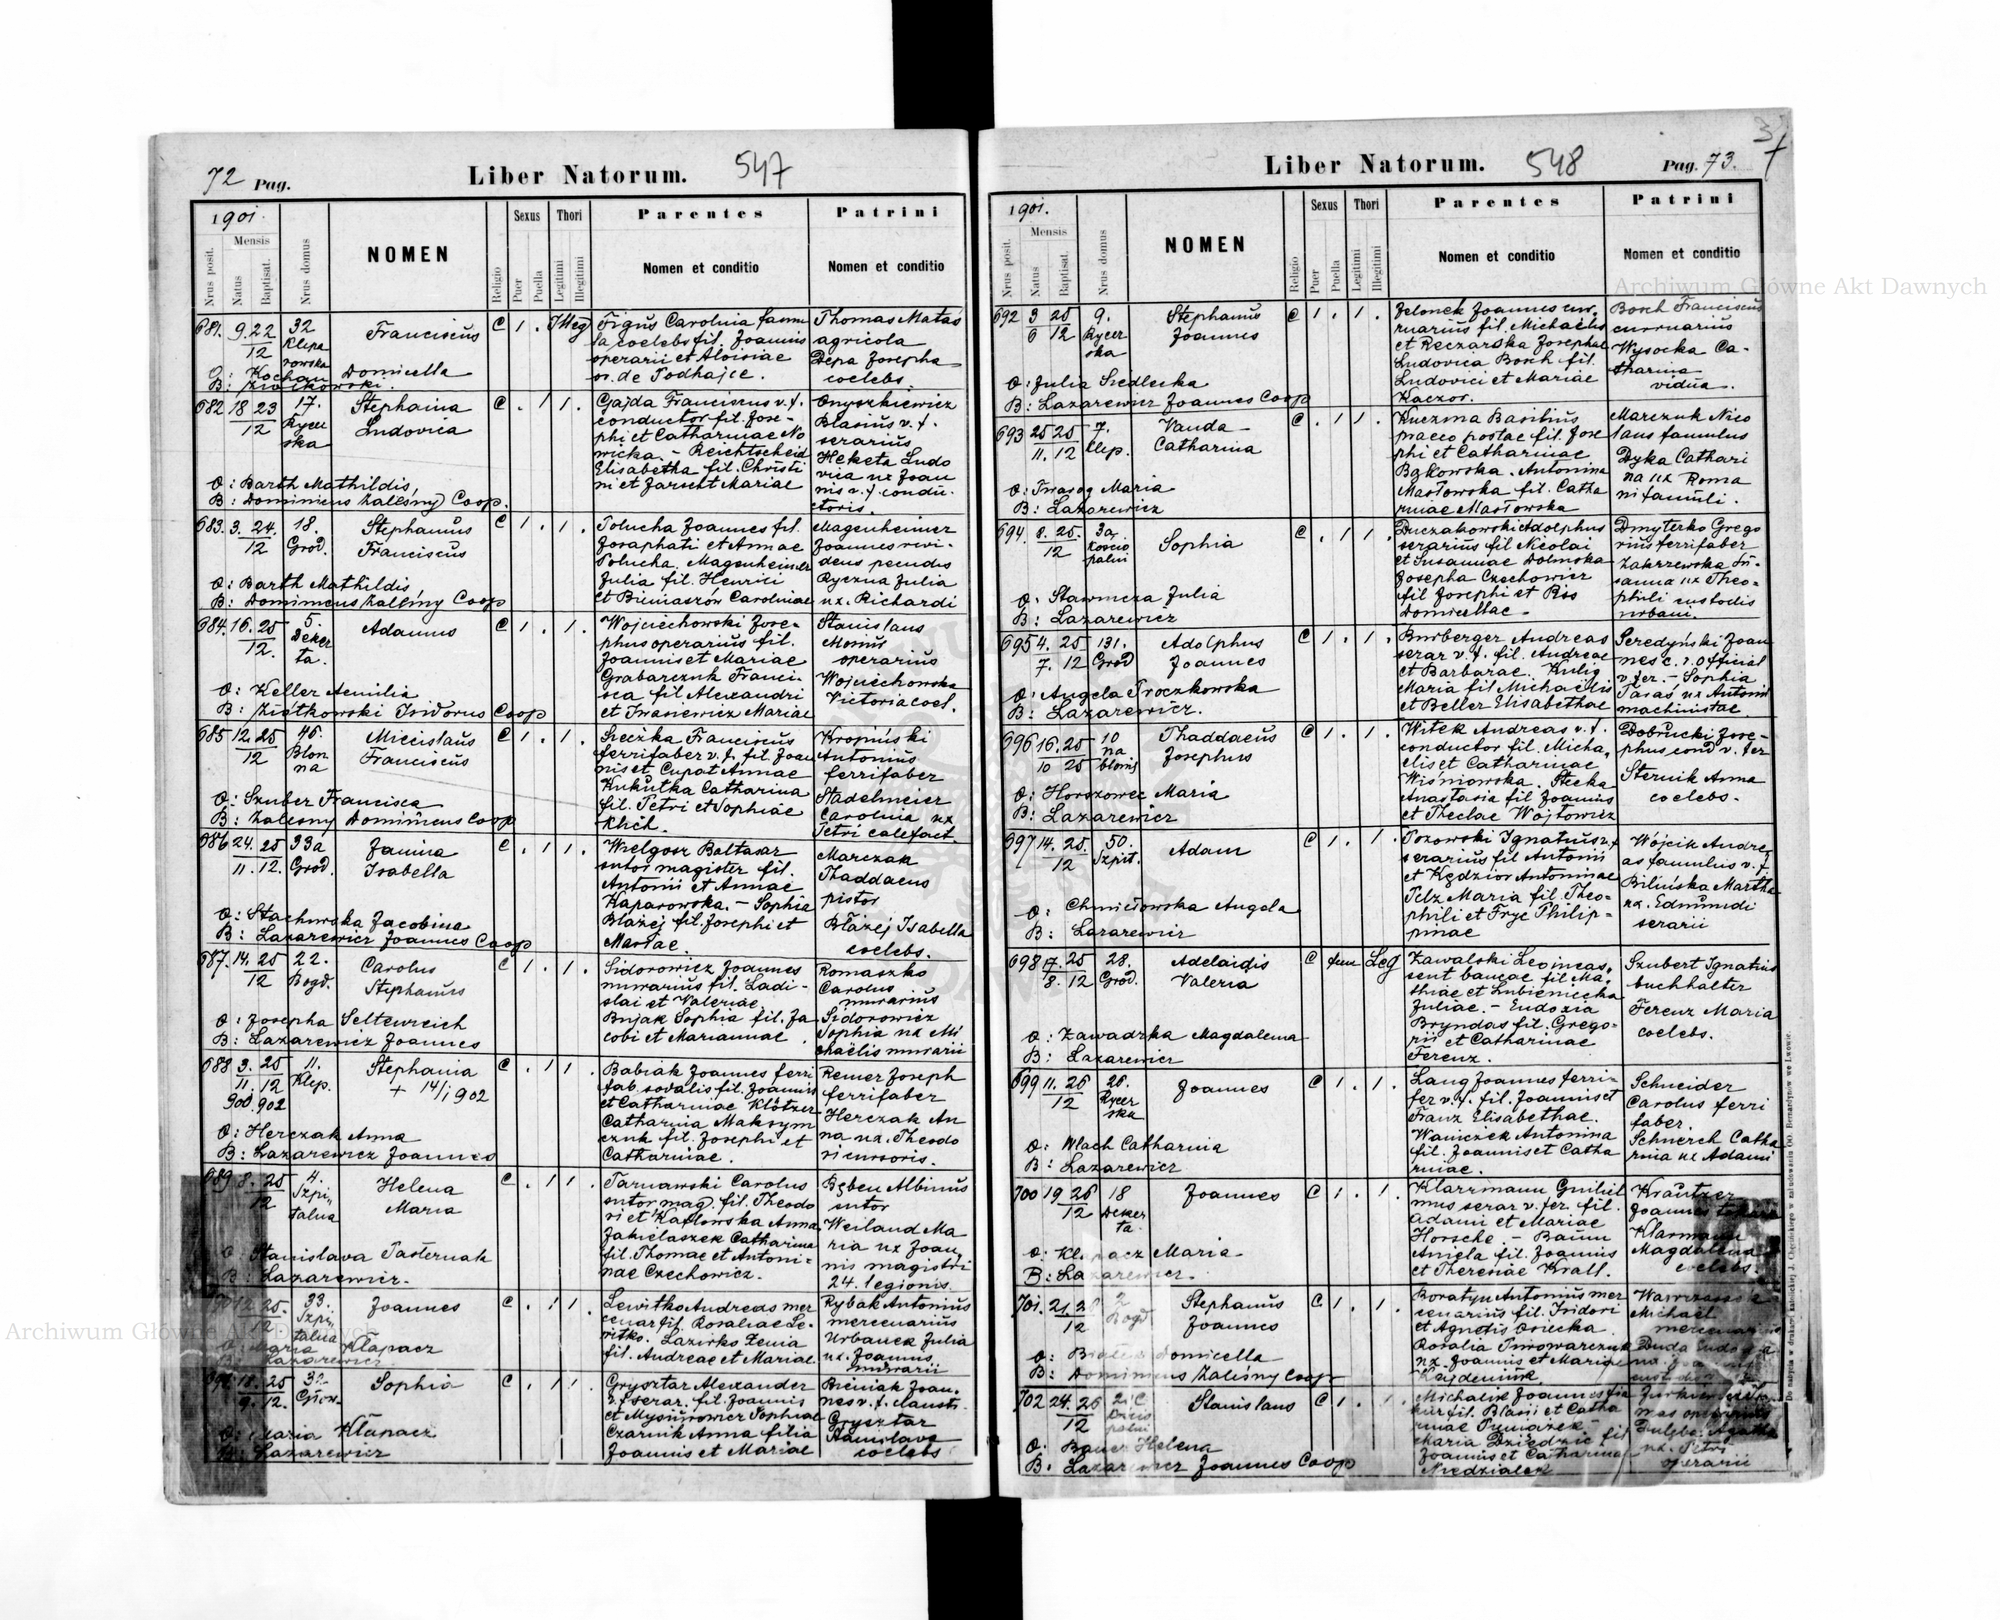 72 Pag.
Liber Natorum.
547
1901.
Mensis
Nrus posit.
Natus
Baptisat.
Nrus domus
NOMEN
Religio
Sexus
Puer
Puella
Thori
Legitimi
Illegitimi
Parentes
Nomen et conditio
Patrini
Nomen et conditio
681. 9. 22 32 Franciscus C 1 . Illeg
12 Klepa
rowska
O: Kochan Domicella
B: Ziółkowski.
Figus Carolina famu
la coelebs fil. Joannis
operarii et Aloisiae
or. de Podhajce.
Thomas Matas
agricola
Depa Josepha
coelebs.
682 18 23 17. Stephania C . 1 1 .
12 Rycer Ludovica
ska
O: Barth Mathildis
B: Dominicus Załęśny Coop.
Gajda Franciscus v. f.
conductor fil. Jose-
phi et Catharinae No
wicka. - Reichtscheid
Elisabetha fil. Christi
ni et Jarscht Mariae
Onyszkiewicz
Blasius v. f.
serarius
Heketa Ludo
vica ux Joan
nis v. f. condu-
ctoris.
683. 3. 24. 18. Stephanus C 1 . 1 .
12 Grod. Franciscus
O: Barth Mathildis
B: Dominicus Załęśny Coop
Polucha Joannes fil.
Josaphati et Annae
Polucha. Magenheimer
Julia fil. Henrici
et Bieniaszów Carolinae
Magenheimer
Joannes revi-
dens pecudis
Ryczna Julia
ux. Richardi
684. 16. 25 5. Adamus C 1 . 1 .
12. Deker
ta.
O: Keller Aemilia
B: Ziółkowski Isidorus Coop
Wojciechowski Jose-
phus operarius fil.
Joannis et Mariae
Grabarczuk Franci-
sca fil Alexandri
et Iwasiewicz Mariae
Stanislaus
Morius
operarius
Wojciechowska
Victoria coel.
685 12. 25 46. Miecislaus C 1 . 1 .
12 Błon Franciscus
na
O: Szuber Francisca
B: Załęśny Dominicus Coop
Sieczka Franciscus
ferrifaber v. f. fil. Joan
nis et Cupat Annae
Kukułka Catharina
fil. Petri et Sophiae
Klich.
Kropiński
Antonius
ferrifaber
Stadelmeier
Carolina ux
Petri calefact.
686 24. 25 33a Janina C . 1 1 .
11. 12. Grod. Isabella
O: Stachurska Jacobina
B: Lazarewicz Joannes Coop
Wielgosz Baltasar
sutor magister fil.
Antonii et Annae
Kaparowska. - Sophia
Błażej fil. Josephi et
Mariae.
Marczak
Thaddaeus
pistor
Błażej Isabella
coelebs.
687. 14. 25 22. Carolus C 1 . 1 .
12 Bogd. Stephanus
O: Josepha Seltenreich
B: Lazarewicz Joannes
Sidorowicz Joannes
murarius fil. Ladi-
slai et Valeriae.
Bujak Sophia fil. Ja
cobi et Mariannae.
Romaszko
Carolus
murarius
Sidorowicz
Sophia ux Mi
chaëlis murarii
688 3. 25 11. Stephania C . 1 1 .
11. 12 Klep. + 14/1 902
900. 902
O: Herczak Anna
B: Lazarewicz Joannes
Babiak Joannes ferri
fab. sodalis fil. Joannis
et Catharinae Klötzer
Catharina Maksym
czuk fil. Josephi et
Catharinae.
Remer Joseph
ferrifaber
Herczak An
na ux. Theodo
ri cursoris.
689 8. 25 4. Helena C . 1 1 .
12 Szpi- Maria
talna
O: Stanislava Pasternak
B: Lazarewicz.
Tarnawski Carolus
sutor mag. fil. Theodo
ri et Kozłowska Anna
Jakielaszek Catharina
fil. Thomae et Antoni-
nae Czechowicz.
Bęben Albinus
sutor
Weiland Ma
ria ux Joan-
nis magistri
24. legionis.
12. 25. 33. Joannes C . 1 1 .
12. Szpi-
talna
O: Maria Kłapacz
B: Lazarewicz
Lewitko Andreas mer
cenar fil. Rosaliae Le-
witko. Lazirko Xenia
fil. Andreae et Mariae.
Rybak Antonius
mercenarius
Urbanek Julia
ux. Joannis
murarii
18. 25 Sophia C . 1 1 .
9. 12.
O: Maria Kłapacz
B: Lazarewicz
Grysztar Alexander
v. f. serar. fil. Joannis
et Mysiurowicz Sophiae
Czarnik Anna filia
Joannis et Mariae
Bieniak Joan-
nes v. f. claust.
Grysztar
Stanislava
coelebs
Liber Natorum.
548
Pag. 73.
37
1901.
Mensis
Nrus posit.
Natus
Baptisat.
Nrus domus
NOMEN
Religio
Sexus
Puer
Puella
Thori
Legitimi
Illegitimi
Parentes
Nomen et conditio
Patrini
Nomen et conditio
692 3 25 9. Stephanus C 1 . 1 .
6 12 Rycer Joannes
ska
O: Julia Siedlecka
B: Lazarewicz Joannes Coop
Zelonek Joannes cur-
ruarius fil. Michaëlis
et Reczarska Josephae
Ludovica Bosch fil.
Ludovici et Mariae
Kaczor.
Bosch Franciscus
curruarius
Wysocka Ca-
tharina
vidua.
693 25 25 7. Vanda C . 1 1 .
11. 12 Klep. Catharina
O: Twaróg Maria
B: Lazarewicz
Kuczma Basilius
praeco postae fil. Jose
phi et Catharinae
Bąkowska. Antonina
Masłowska fil. Catha
rinae Masłowska
Marczuk Nico
laus famulus
Dyka Cathari
na ux Roma
ni famuli.
694. 8. 25. 3a Sophia C . 1 1 .
12 Koscio
palni
O: Sławnicza Julia
B: Lazarewicz
Duczakowski Adolphus
serarius fil Nicolai
et Susannae Dolinska
Josepha Czechowicz
fil Josephi et Ros
Domicellae.
Dmyterko Grego
rius ferrifaber
Zakrzewska Su-
sanna ux Theo-
phili custodis
urbani.
695 4. 25 131. Adolphus C 1 . 1 .
7. 12 Grod Joannes
O: Angela Proczkowska
B: Lazarewicz.
Burberger Andreas
serar v. f. fil. Andreae
et Barbarae. Kulig
Maria fil Michaëlis
et Beller Elisabethae
Seredyński Joan
nes c. r. official
v. fer. - Sophia
Paraś ux Antonii
machinistae.
696 16. 25 10 Thaddaeus C 1 . 1 .
10 25 na Josephus
błonis
O: Horszowec Maria
B: Lazarewicz
Witek Andreas v. f.
conductor fil. Micha-
elis et Catharinae
Wiśniowska. Stecka
Anastasia fil Joannis
et Theclae Wójtowicz
Dobrucki Jose-
phus cond v. fer
Sternik Anna
coelebs.
697 14. 25. 50. Adam C 1 . 1 .
12 Szpit.
O: Chmielowska Angela
B: Lazarewicz
Pozowski Ignatius v. f
serarius fil Antonii
et Kędzior Antoninae
Pelz Maria fil. Theo-
phili et Fryc Philip-
pinae
Wójcik Andre-
as famulus v. f.
Bilińska Martha
ux. Edmundi
serarii
698 17. 25 28. Adelaidis C fem Leg
8. 12 Grod. Valeria
O: Zawadzka Magdalena
B: Lazarewicz
Zawalski Leo incas-
sent bancae fil. Ma-
thiae et Lubieniecka
Juliae. - Eudoxia
Bryndas fil. Grego-
rii et Catharinae
Ferenz.
Szubert Ignatius
buchhalter
Ferenz Maria
coelebs.
699 11. 26 26. Joannes C 1 . 1 .
12 Rycer
ska
O: Wlach Catharina
B: Lazarewicz
Lang Joannes ferri-
fer v. f. fil. Joannis et
Franz Elisabethae.
Waniczek Antonina
fil. Joannis et Catha
rinae.
Schneider
Carolus ferri
faber.
Schnerch Catha
rina ux Adami
700 19 26 18 Joannes C 1 . 1 .
12 Deker
ta.
O: Kłapacz Maria
B: Lazarewicz.
Klarrmann Guiliel
mus serar v. fer. fil.
Adami et Mariae
Horsche. - Baum
Aniela fil. Joannis
et Theresiae Krall.
Kräutzer
Joannes
Klarmann
Magdalena
coelebs.
701. 21 26 2 Stephanus C 1 . 1 .
12 Bogd Joannes
O: Domicella
B: Dominicus Załęśny Coop
Boratyn Antonius mer
cenarius fil. Isidori
et Agnetis Osiecka.
Rosalia Piwowarczuk
ux. Joannis et Mariae
Kajdeniuk.
Wawrzaszek
Michaël
mercenarius
Duda Eudoxia
702 24. 26 Stanislaus C 1 . 1 .
12
O: Bauer Helena
B: Lazarewicz Joannes Coop
Michalik Joannes fia
ker fil. Blasii et Catha
rinae
Maria Dziedzic fil
Joannis et Catharinae
Niedzialek
ux. Petri
operarii
Do nabycia w drukarni katolickiej J. Chęcińskiego w zabudowaniu OO. Bernardynów we Lwowie.
Archiwum Główne Akt Dawnych
Archiwum Główne Akt Dawnych